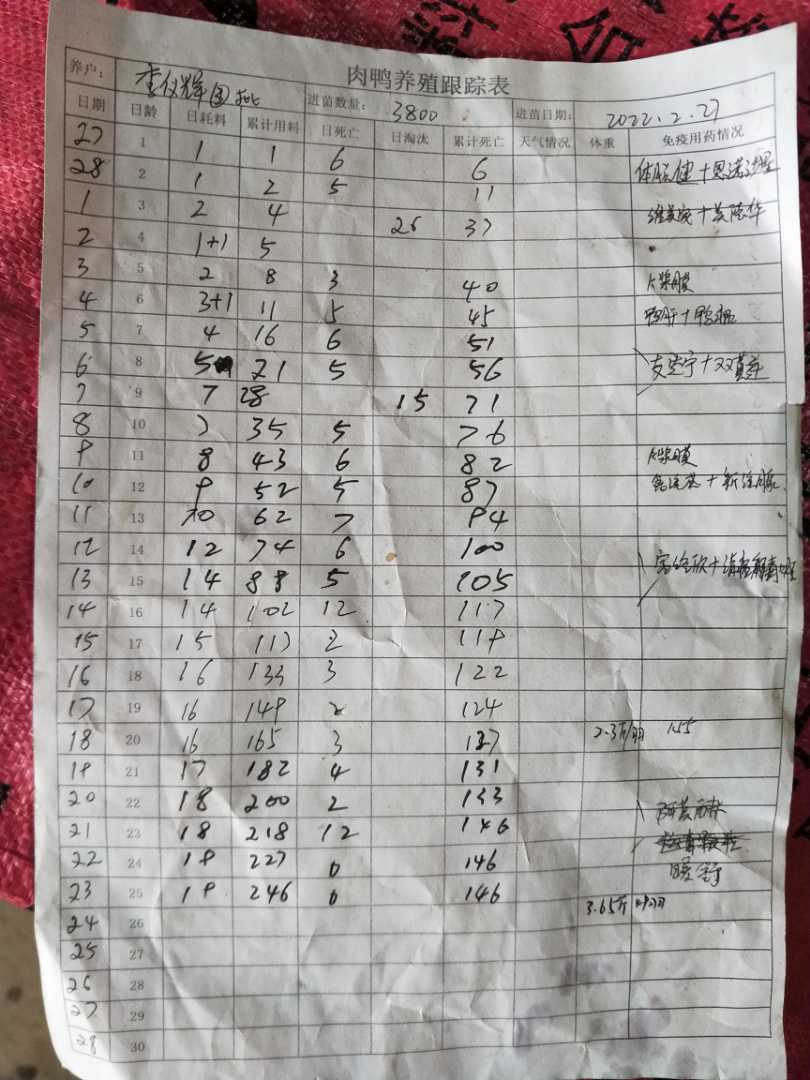 肉鸭养殖跟踪表
养户: 李仪辉 批 进苗数量: 3800 进苗日期: 2022.2.27
日期 日龄 日耗料 累计用料 日死亡 日淘汰 累计死亡 天气情况 体重 免疫用药情况
27 1 1 1 6 6
28 2 1 2 5 11
1 3 2 4 26 37
2 4 1+1 5
3 5 2 8 3 40 浆膜
4 6 3+1 11 5 45
5 7 4 16 6 51
6 8 5 21 5 56 双黄连
7 9 7 28 15 71
8 10 7 35 5 76
9 11 8 43 6 82 浆膜
10 12 9 52 5 87
11 13 10 62 7 94
12 14 12 74 6 100
13 15 14 88 5 105
14 16 14 102 12 117
15 17 15 117 2 119
16 18 16 133 3 122
17 19 16 149 2 124
18 20 16 165 3 127 2.3斤/羽 1.55
19 21 17 182 4 131
20 22 18 200 2 133
21 23 18 218 12 146
22 24 19 227 0 146
23 25 19 246 0 146 3.65斤
24 26
25 27
26 28
27 29
28 30